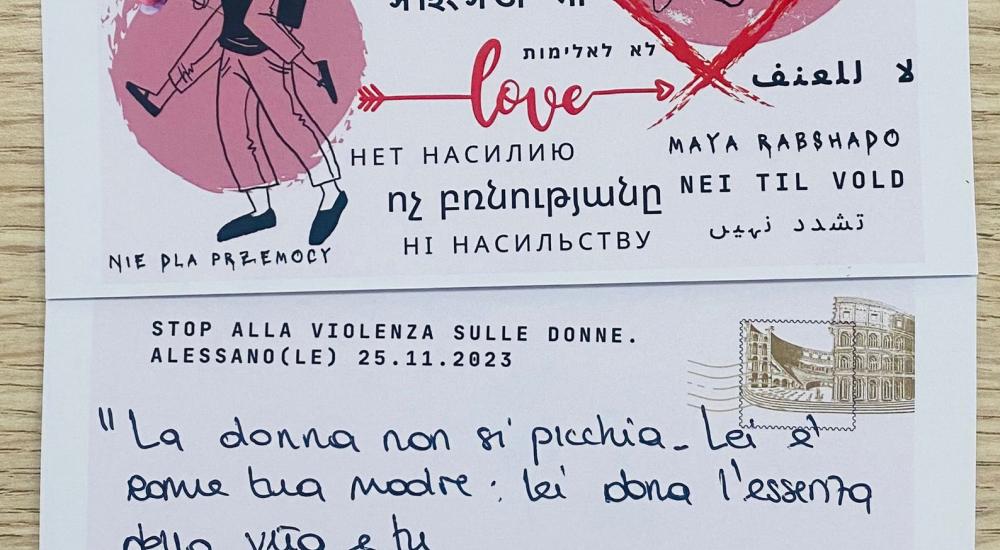 לא לאלימות
love
لا للعنف
НЕТ НАСИЛИЮ
MAYA RABSHADO
ոչ բռնությանը
NEI TIL VOLD
НІ НАСИЛЬСТВУ
تشدد نہیں
NIE DLA PRZEMOCY
STOP ALLA VIOLENZA SULLE DONNE.
ALESSANO(LE) 25.11.2023
"La donna non si picchia. Lei è
come tua madre: lei dona l'essenza
della vita e tu